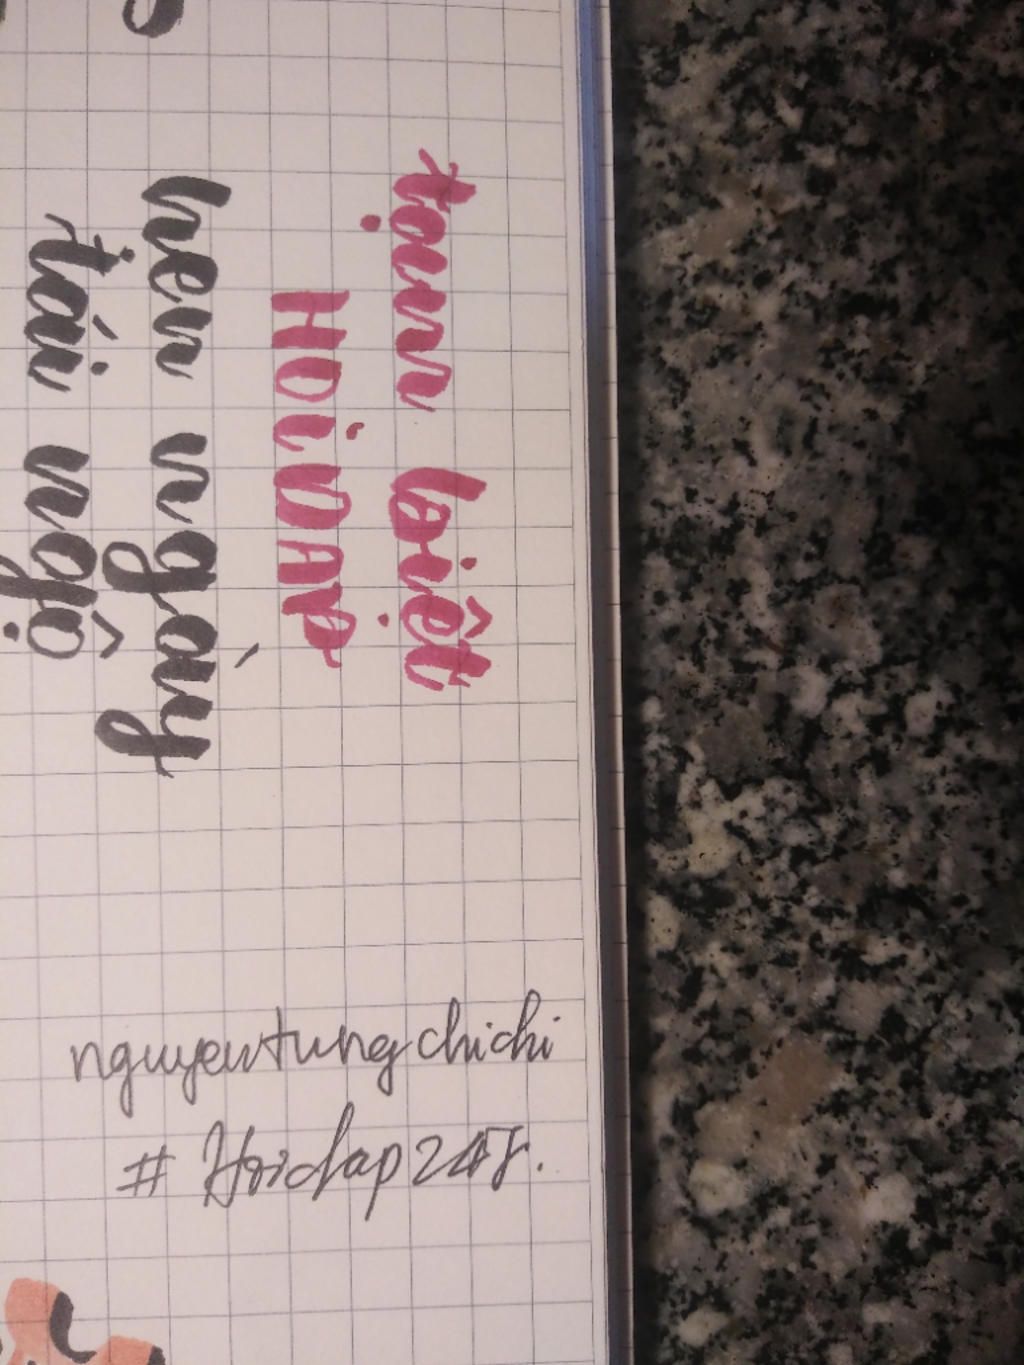 tạm biệt
HOIDAP
hẹn ngày
tái ngộ
nguyentungchichi
# Hoidap247.